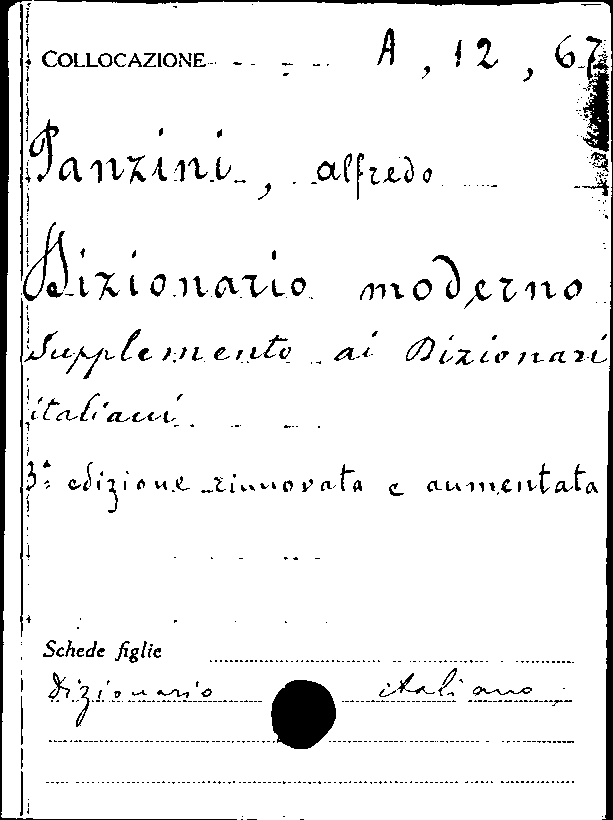 COLLOCAZIONE A, 12, 67
Panzini, alfredo
Dizionario moderno
Supplemento ai Dizionari
italiani
3ª edizione rinnovata e aumentata
Schede figlie
Dizionario italiano